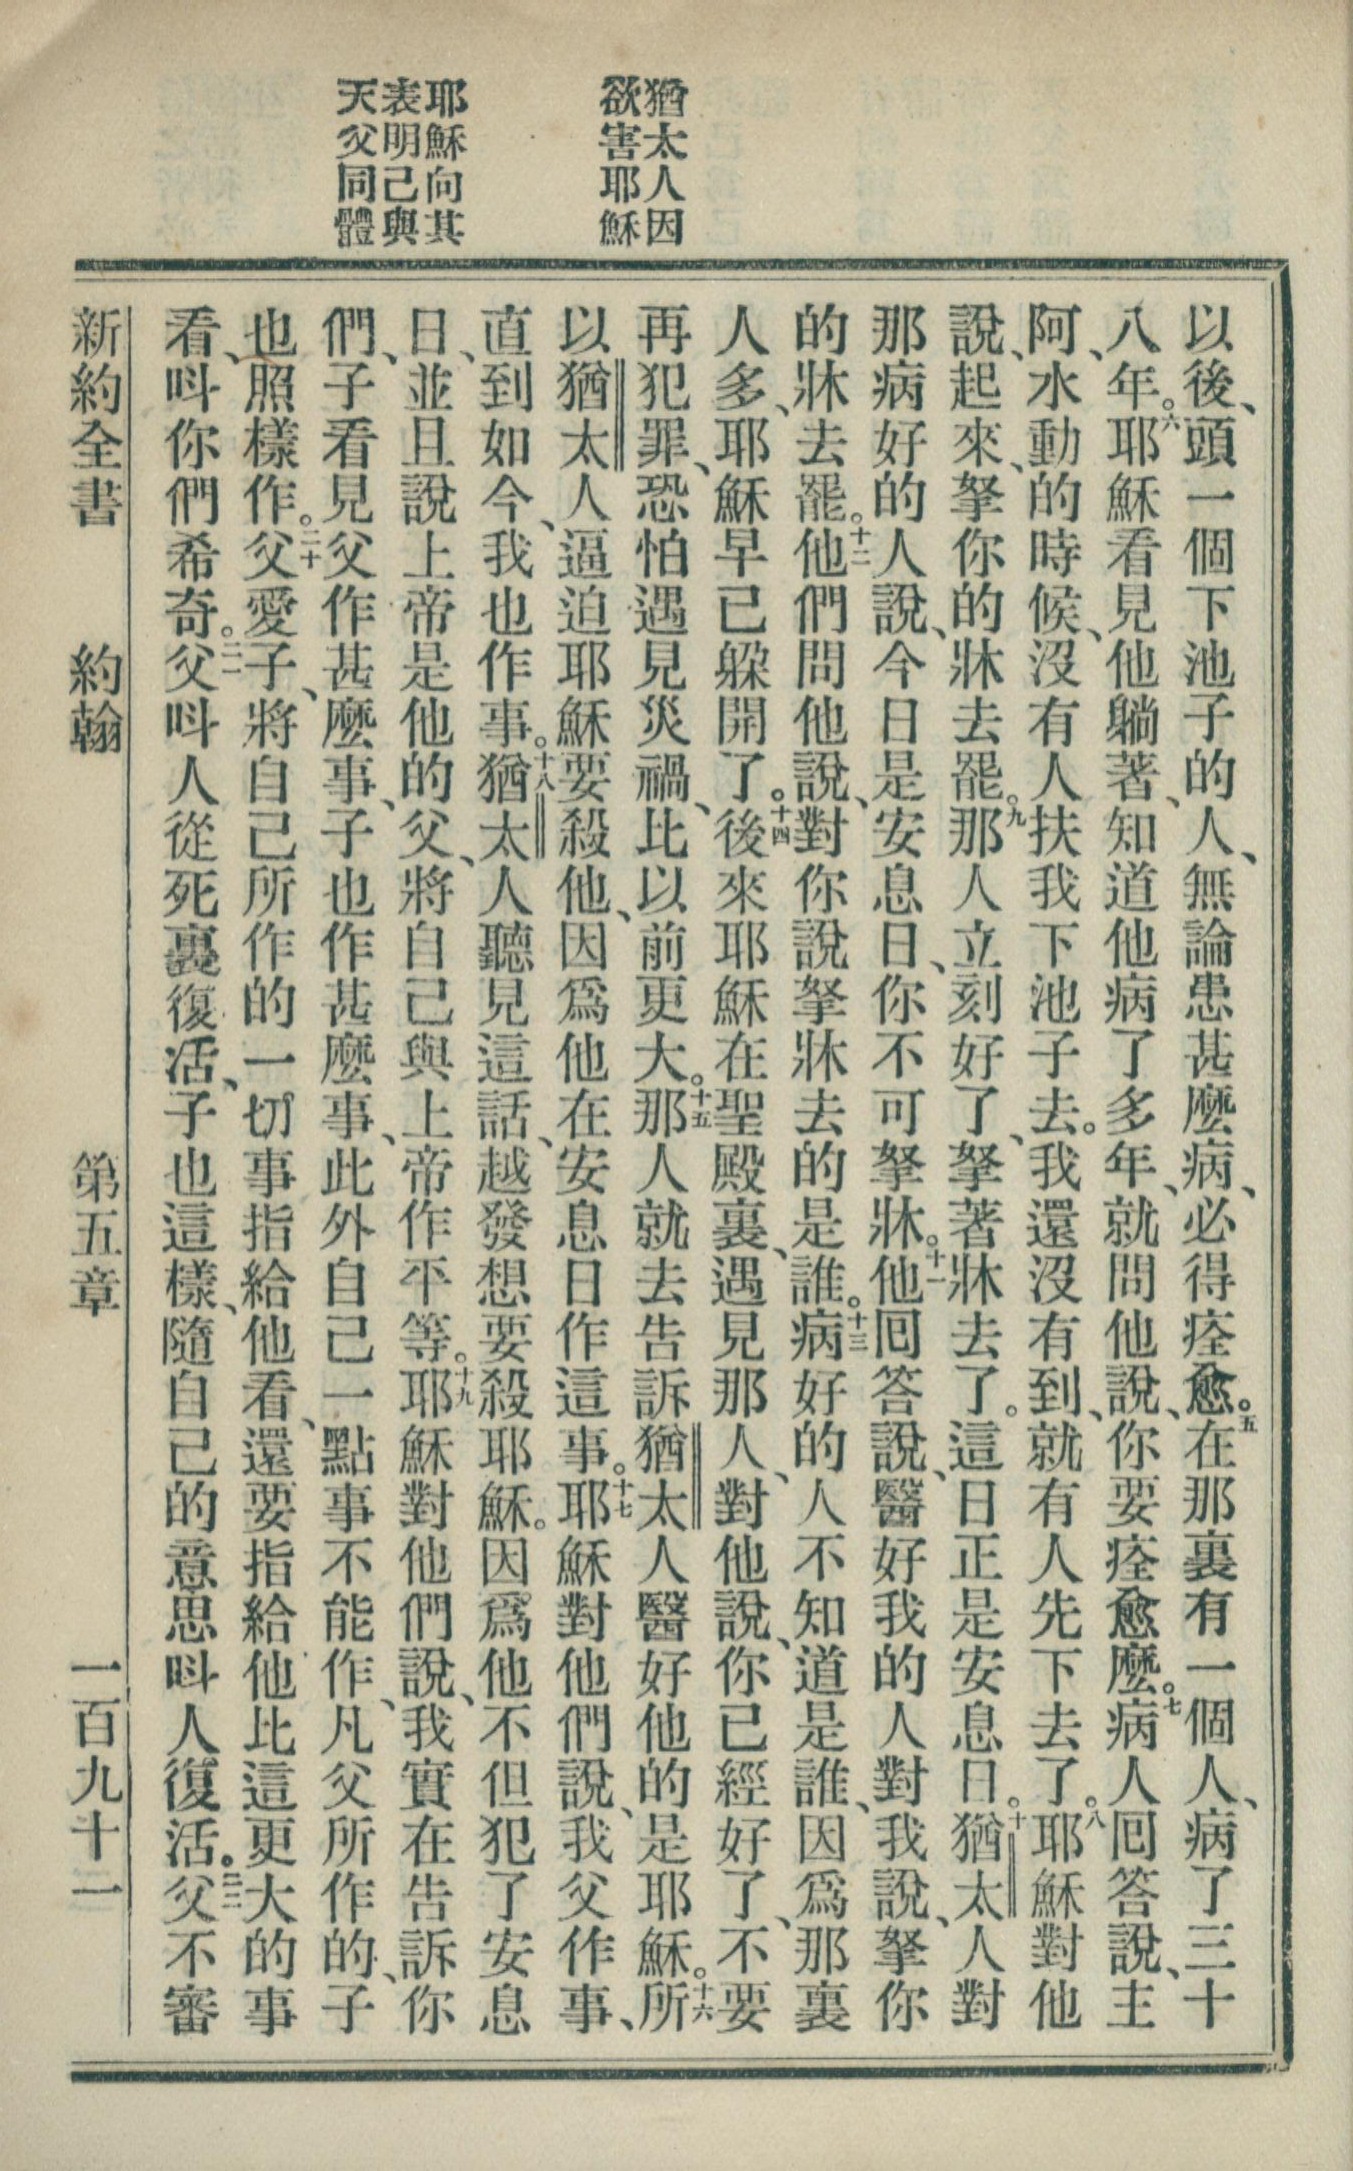 猶太人因
欲害耶穌
耶穌向其
表明己與
天父同體
以後、頭一個下池子的人、無論患甚麼病、必得痊愈。五在那裏有一個人、病了三十
八年。六耶穌看見他躺著、知道他病了多年、就問他說、你要痊愈麼。七病人囘答說、主
阿、水動的時候、沒有人扶我下池子去。我還沒有到、就有人先下去了。八耶穌對他
說、起來、拏你的牀去罷。九那人立刻好了、拏著牀去了。這日正是安息日。十猶太人對
那病好的人說、今日是安息日、你不可拏牀。十一他囘答說、醫好我的人對我說、拏你
的牀去罷。十二他們問他說、對你說拏牀去的是誰。十三病好的人不知道是誰、因爲那裏
人多、耶穌早已躱開了。十四後來耶穌在聖殿裏、遇見那人、對他說、你已經好了、不要
再犯罪、恐怕遇見災禍、比以前更大。十五那人就去告訴猶太人醫好他的是耶穌。十六所
以猶太人逼迫耶穌要殺他、因爲他在安息日作這事。十七耶穌對他們說、我父作事、
直到如今、我也作事。十八猶太人聽見這話、越發想要殺耶穌。因爲他不但犯了安息
日、並且說上帝是他的父、將自己與上帝作平等。十九耶穌對他們說、我實在告訴你
們、子看見父作甚麼事、子也作甚麼事、此外自己一點事不能作、凡父所作的、子
也照樣作。二十父愛子、將自己所作的一切事指給他看、還要指給他比這更大的事
看、呌你們希奇。二一父呌人從死裏復活、子也這樣、隨自己的意思呌人復活。二二父不審
新約全書 約翰 第五章 一百九十一